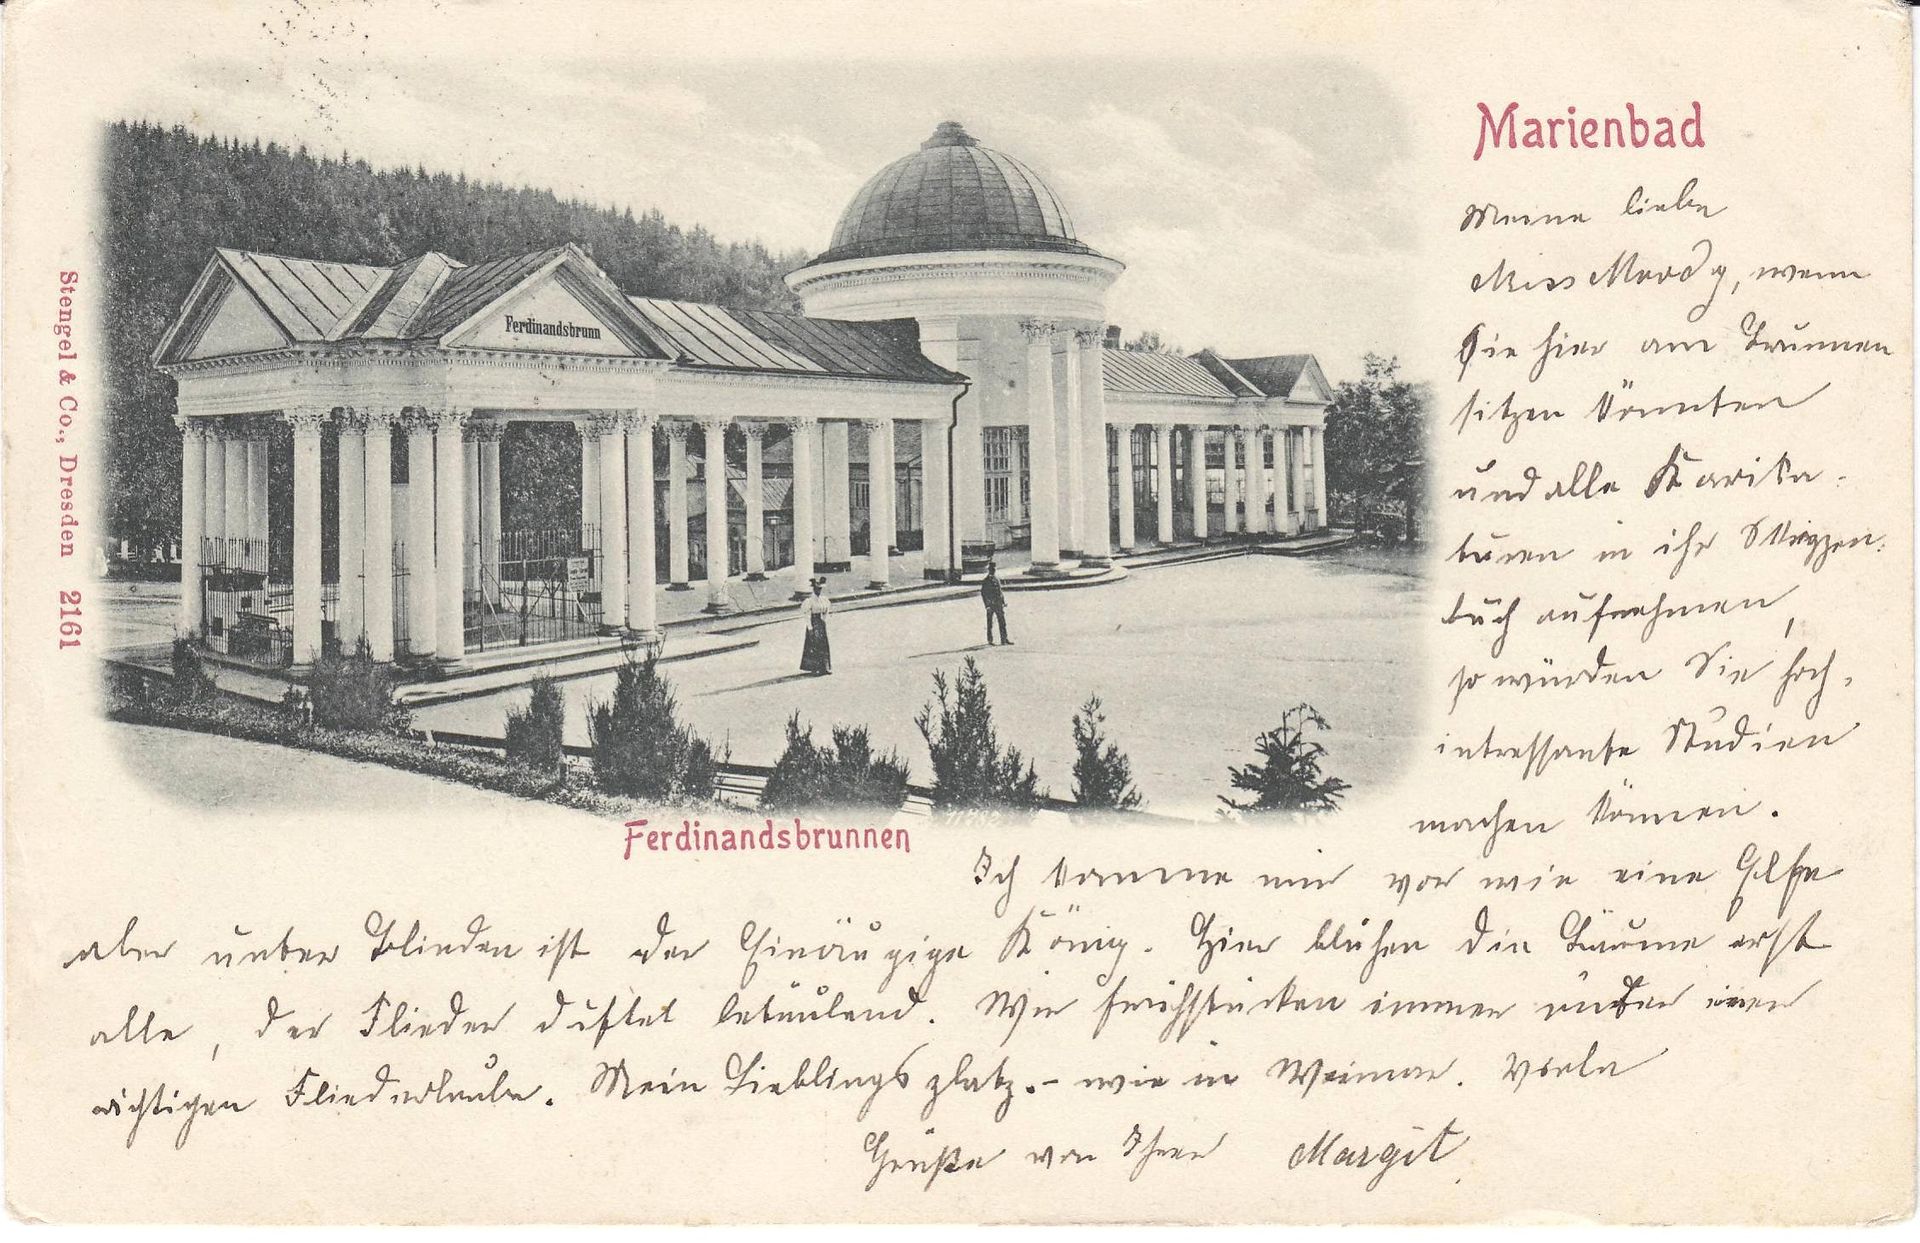 Marienbad
Meine liebe
Miss Moody, wenn
Sie hier am Brunnen
sitzen könnten
und alle Karika-
turen in ihr Skizzen-
buch aufnehmen,
so würden Sie hoch-
intressante Studien
machen können.
Ferdinandsbrunn
Stengel & Co., Dresden 2161
11782
Ferdinandsbrunnen
Ich komme mir vor wie eine Elfe
aber unter Blinden ist der Einäugige König. Hier blühen die Bäume erst
alle, der Flieder duftet betäubend. Wir frühstücken immer unter einer
richtigen Fliederlaube. Mein Lieblingsplatz. – wie in Weimar. Viele
Grüße von Ihrer Margit.